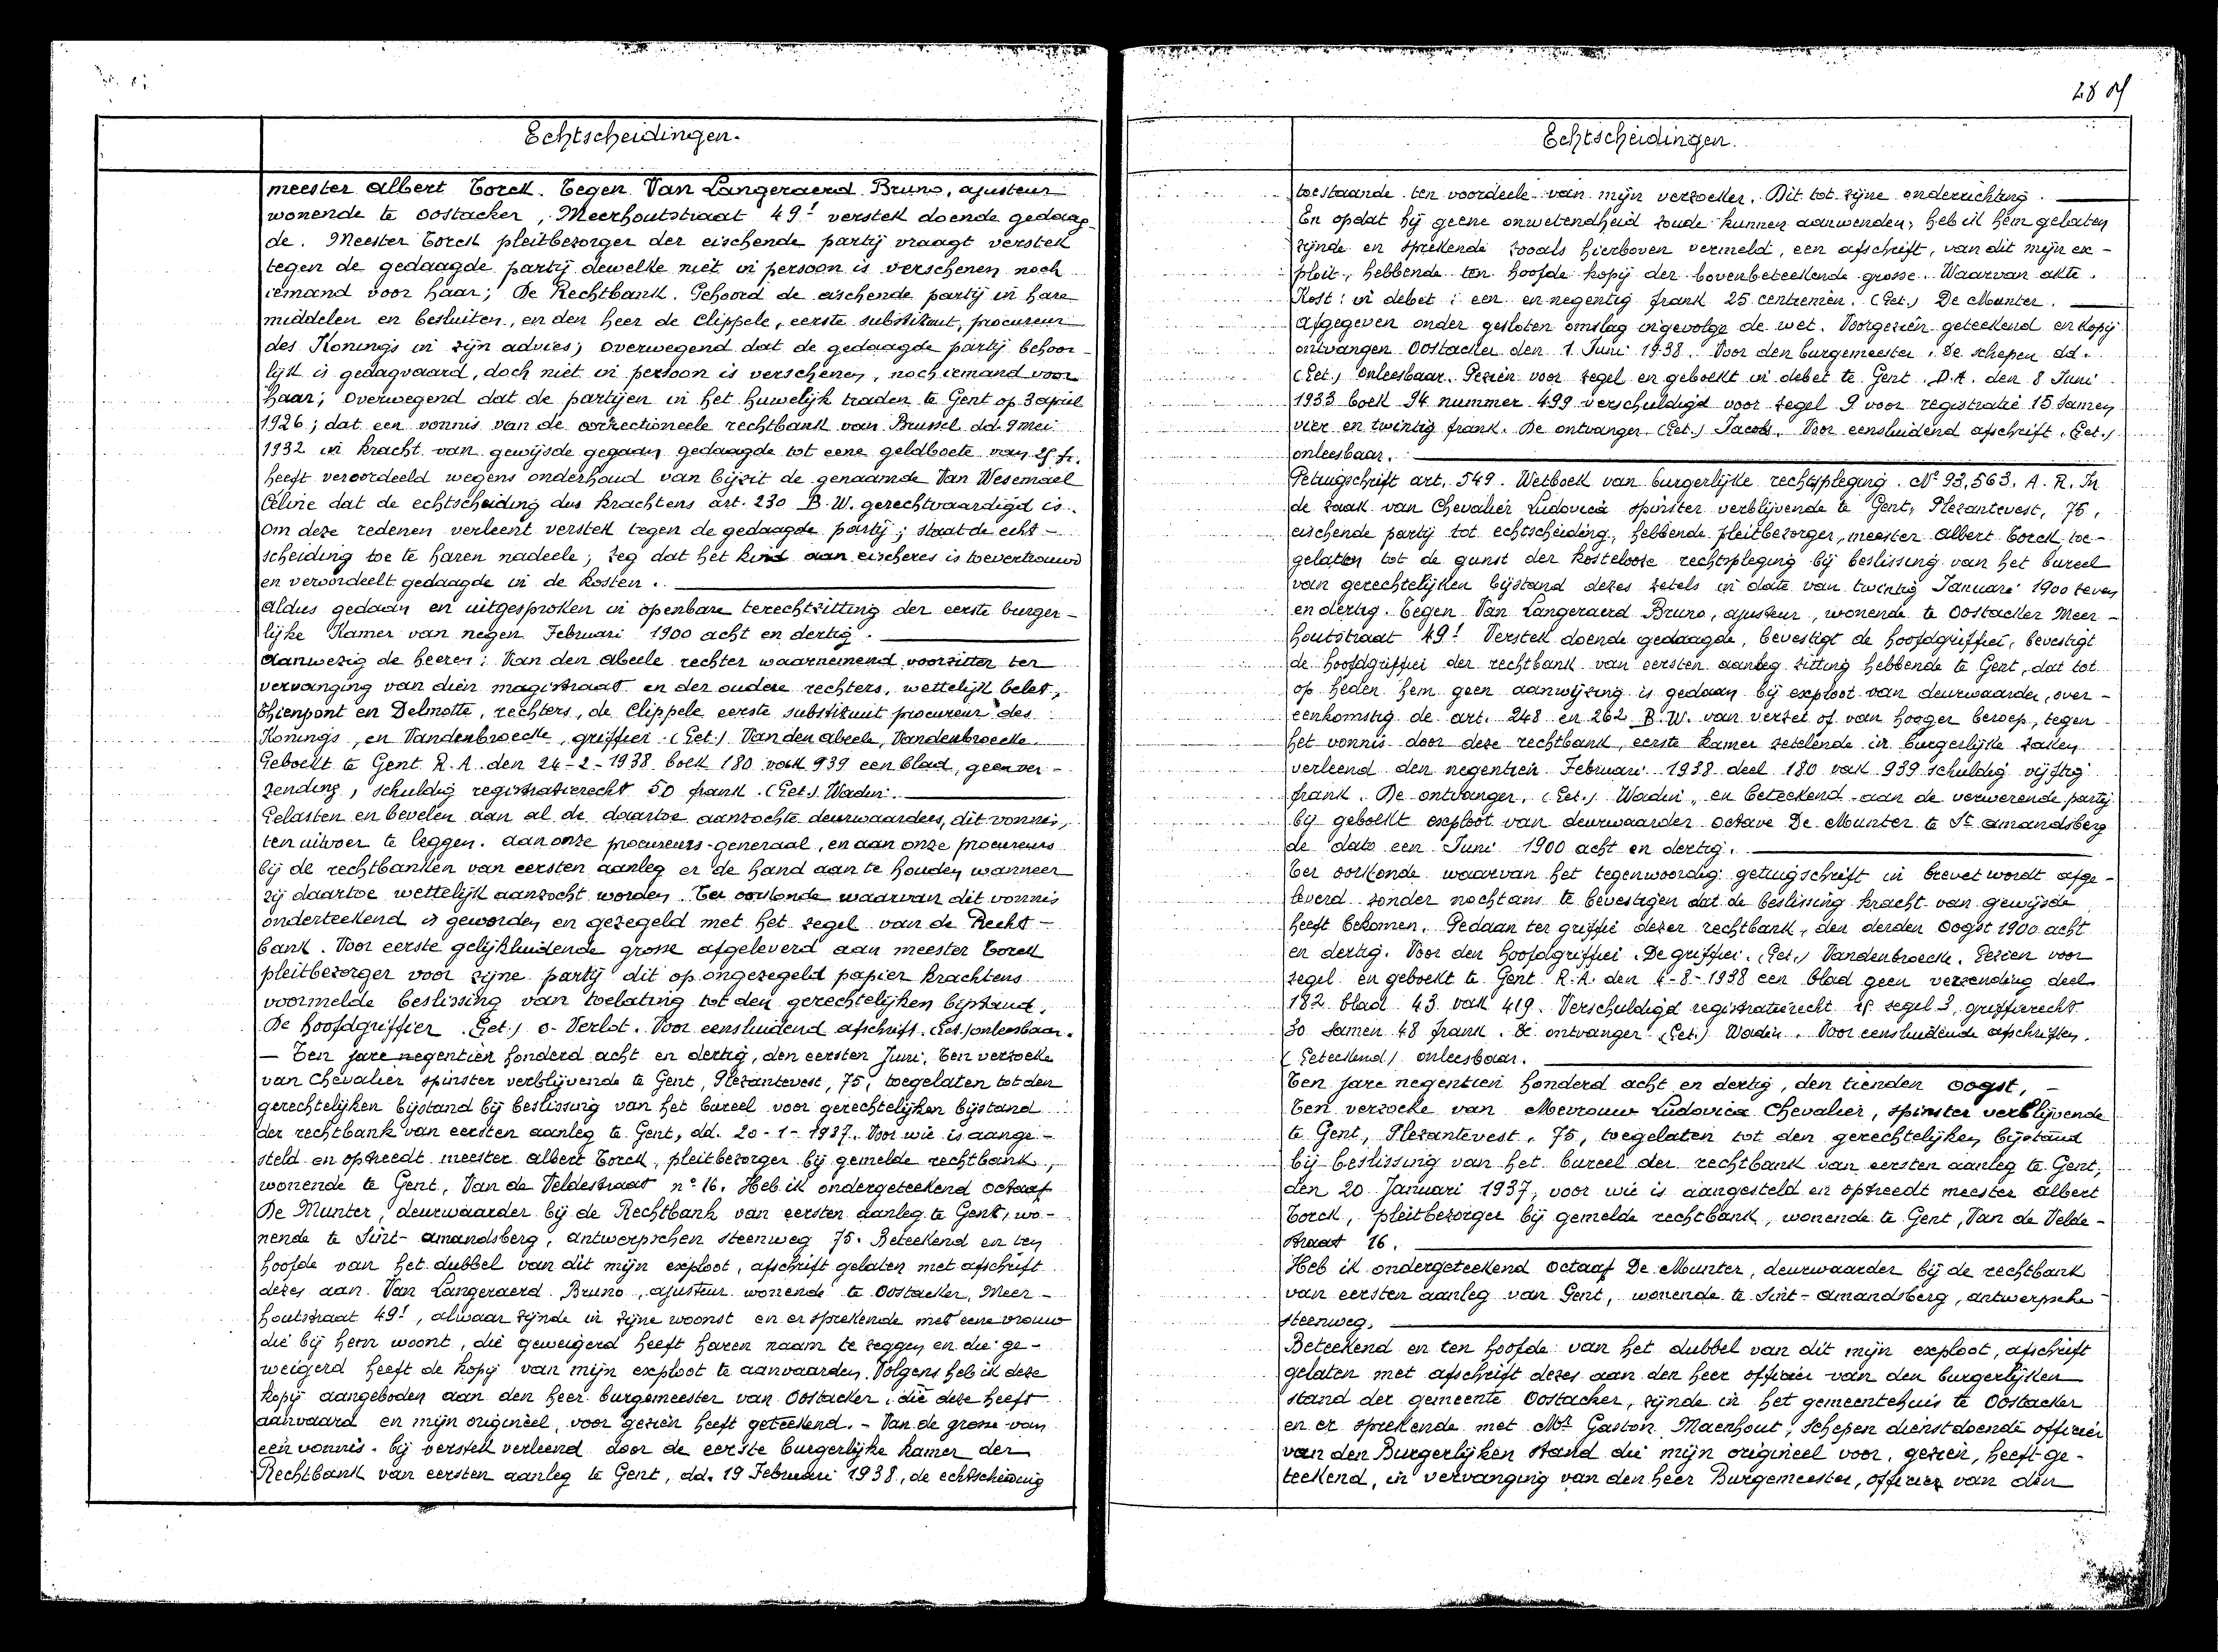 Echtscheidingen.
meester Albert Torck. Tegen Van Langeraerd Bruno, ajusteur
wonende te Oostacker, Meerhoutstraat 49! verstek doende gedaag-
de. Meester Torck pleitbezorger der eischende partij vraagt verstek
tegen de gedaagde partij dewelke niet in persoon is verschenen noch
iemand voor haar; De Rechtbank. Gehoord de eischende partij in hare
middelen en besluiten, en den heer de Clippele, eerste substituut, procureur
des Konings in zijn advies; overwegend dat de gedaagde partij behoor-
lijk is gedagvaard, doch niet in persoon is verschenen, noch iemand voor
haar; overwegend dat de partijen in het huwelijk traden te Gent op 3 april
1926; dat een vonnis van de correctioneele rechtbank van Brussel dd. 9 mei
1932 in kracht van gewijsde gegaan gedaagde tot eene geldboete van 25 fr.
heeft veroordeeld wegens onderhoud van bijzit de genaamde Van Wesemael
Celine dat de echtscheiding dus krachtens art. 230 B.W. gerechtvaardigd is.
Om deze redenen verleent verstek tegen de gedaagde partij; staat de echt-
scheiding toe te haren nadeele; zeg dat het kind aan eischeres is toevertrouwd
en veroordeelt gedaagde in de kosten.
Aldus gedaan en uitgesproken in openbare terechtzitting der eerste burger-
lijke Kamer van negen Februari 1900 acht en dertig.
Aanwezig de heeren: Van den Abeele rechter waarnemend voorzitter ter
vervanging van dien magistraat en der oudere rechters, wettelijk belet,
Thienpont en Delmotte, rechters, de Clippele eerste substituut procureur des
Konings, en Vandenbroecke, griffier. (Get.) Van den Abeele, Vandenbroecke
Geboekt te Gent R.A. den 24-2-1938 boek 180 vak 939 een blad, geen ver-
zending, schuldig registratierecht 50 frank. (Get.) Wadin.
Gelasten en bevelen aan al de daartoe aanzochte deurwaarders, dit vonnis,
ten uitvoer te leggen. Aan onze procureurs-generaal, en aan onze procureurs
bij de rechtbanken van eersten aanleg er de hand aan te houden wanneer
zij daartoe wettelijk aanzocht worden. Ter oorkonde waarvan dit vonnis
onderteekend is geworden en gezegeld met het zegel van de Recht-
bank. Voor eerste gelijkluidende grosse afgeleverd aan meester Torck
pleitbezorger voor zijne partij dit op ongezegeld papier krachtens
voormelde beslissing van toelating tot den gerechtelijken bijstand.
De hoofdgriffier (Get.) O. Verlot. Voor eensluidend afschrift. (Get.) onleesbaar.
— Ten jare negentien honderd acht en dertig, den eersten Juni. Ten verzoeke
van Chevalier spinster verblijvende te Gent, Plezantevest, 75, toegelaten tot den
gerechtelijken bijstand bij beslissing van het bureel voor gerechtelijken bijstand
der rechtbank van eersten aanleg te Gent, dd. 20-1-1937. Voor wie is aange-
steld en optreedt meester Albert Torck, pleitbezorger bij gemelde rechtbank,
wonende te Gent, Van de Veldestraat n° 16. Heb ik ondergeteekend Octaaf
De Munter, deurwaarder bij de Rechtbank van eersten aanleg te Gent, wo-
nende te Sint-Amandsberg, Antwerpschen steenweg 75. Beteekend en ten
hoofde van het dubbel van dit mijn exploot, afschrift gelaten met afschrift
dezes aan Van Langeraerd Bruno, ajusteur wonende te Oostacker, Meer-
houtstraat 49!, alwaar zijnde in zijne woonst en er sprekende met eene vrouw
die bij hem woont, die geweigerd heeft haren naam te zeggen en die ge-
weigerd heeft de kopij van mijn exploot te aanvaarden. Volgens heb ik deze
kopij aangeboden aan den heer burgemeester van Oostacker, die deze heeft
aanvaard en mijn origineel, voor gezien heeft geteekend. - Van de grosse van
een vonnis. bij verstek verleend door de eerste burgerlijke kamer der
Rechtbank van eersten aanleg te Gent, dd. 19 Februari 1938, de echtscheiding
28
Echtscheidingen.
toestaande ten voordeele van mijn verzoeker. Dit tot zijne onderrichting.
En opdat hij geene onwetendheid zoude kunnen aanwenden, heb ik hem gelaten
zijnde en sprekende zooals hierboven vermeld, een afschrift, van dit mijn ex-
ploit, hebbende ten hoofde kopij der bovenbeteekende grosse. Waarvan akte.
Kost: in debet: een en negentig frank 25 centiemen. (Get.) De Munter.
Afgegeven onder gesloten omslag ingevolge de wet. Voorgezien geteekend en kopij
ontvangen Oostacker den 1 Juni 1938. Voor den burgemeester. De schepen dd.
(Get.) onleesbaar. Gezien voor zegel en geboekt in debet te Gent. D.A. den 8 Juni
1933 boek 94 nummer 499 verschuldigd voor zegel 9 voor registratie 15 samen
vier en twintig frank. De ontvanger. (Get.) Jacobs. Voor eensluidend afschrift. (Get.)
onleesbaar.
Getuigschrift art. 549. Wetboek van burgerlijke rechtspleging. N° 93.563. A.R. In
de zaak van Chevalier Ludovica spinster verblijvende te Gent, Plezantevest, 75,
eischende partij tot echtscheiding, hebbende pleitbezorger, meester Albert Torck toe-
gelaten tot de gunst der kostelooze rechtspleging bij beslissing van het bureel
van gerechtelijken bijstand dezes zetels in date van twintig Januari 1900 zeven
en dertig. Tegen Van Langeraerd Bruno, ajusteur, wonende te Oostacker Meer-
houtstraat 49! Verstek doende gedaagde, bevestigt de hoofdgriffier, bevestigt
de hoofdgriffier der rechtbank van eersten aanleg zitting hebbende te Gent, dat tot
op heden hem geen aanwijzing is gedaan bij exploot van deurwaarder, over-
eenkomstig de art. 248 en 262 B.W. van verzet of van hooger beroep, tegen
het vonnis door deze rechtbank, eerste kamer zetelende in burgerlijke zaken
verleend den negentien Februari 1938 deel 180 vak 939 schuldig vijftig
frank. De ontvanger. (Get.) Wadin, en beteekend aan de verwerende partij
bij geboekt exploot van deurwaarder Octave De Munter te St Amandsberg
de dato een Juni 1900 acht en dertig.
Ter oorkonde waarvan het tegenwoordig getuigschrift in brevet wordt afge-
leverd zonder nochtans te bevestigen dat de beslissing kracht van gewijsde
heeft bekomen. Gedaan ter griffie dezer rechtbank, den derden Oogst 1900 acht
en dertig. Voor den hoofdgriffier. De griffier. (Get.) Vandenbroecke. Gezien voor
zegel en geboekt te Gent R.A. den 4-8-1938 een blad geen verzending deel
182 blad 43 vak 419. Verschuldigd registratierecht 15 zegel 3, griffierecht
30 samen 48 frank. De ontvanger (Get.) Wadin. Voor eensluidende afschriften.
(Geteekend) onleesbaar.
Ten jare negentien honderd acht en dertig, den tienden Oogst, -
Ten verzoeke van Mevrouw Ludovica Chevalier, spinster verblijvende
te Gent, Plezantevest, 75, toegelaten tot den gerechtelijken bijstand
bij beslissing van het bureel der rechtbank van eersten aanleg te Gent,
den 20 Januari 1937, voor wie is aangesteld en optreedt meester Albert
Torck, pleitbezorger bij gemelde rechtbank, wonende te Gent, Van de Velde-
straat 16.
Heb ik ondergeteekend Octaaf De Munter, deurwaarder bij de rechtbank
van eersten aanleg van Gent, wonende te Sint-Amandsberg, Antwerpsche-
steenweg.
Beteekend en ten hoofde van het dubbel van dit mijn exploot, afschrift
gelaten met afschrift dezes aan den heer officier van den burgerlijken
stand der gemeente Oostacker, zijnde in het gemeentehuis te Oostacker
en er sprekende met Mr Gaston Maenhout, schepen dienstdoende officier
van den Burgerlijken stand die mijn origineel voor, gezien, heeft ge-
teekend, in vervanging van den heer Burgemeester, officier van den